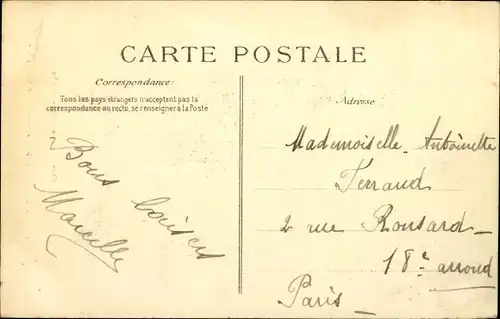 CARTE POSTALE
Correspondance:
Tous les pays étrangers n'acceptent pas la
correspondance au recto, se renseigner à la Poste
Bons baisers
Marcelle
Adresse
Mademoiselle Antoinette
Ferrand
2 rue Ronsard
18e arrond
Paris